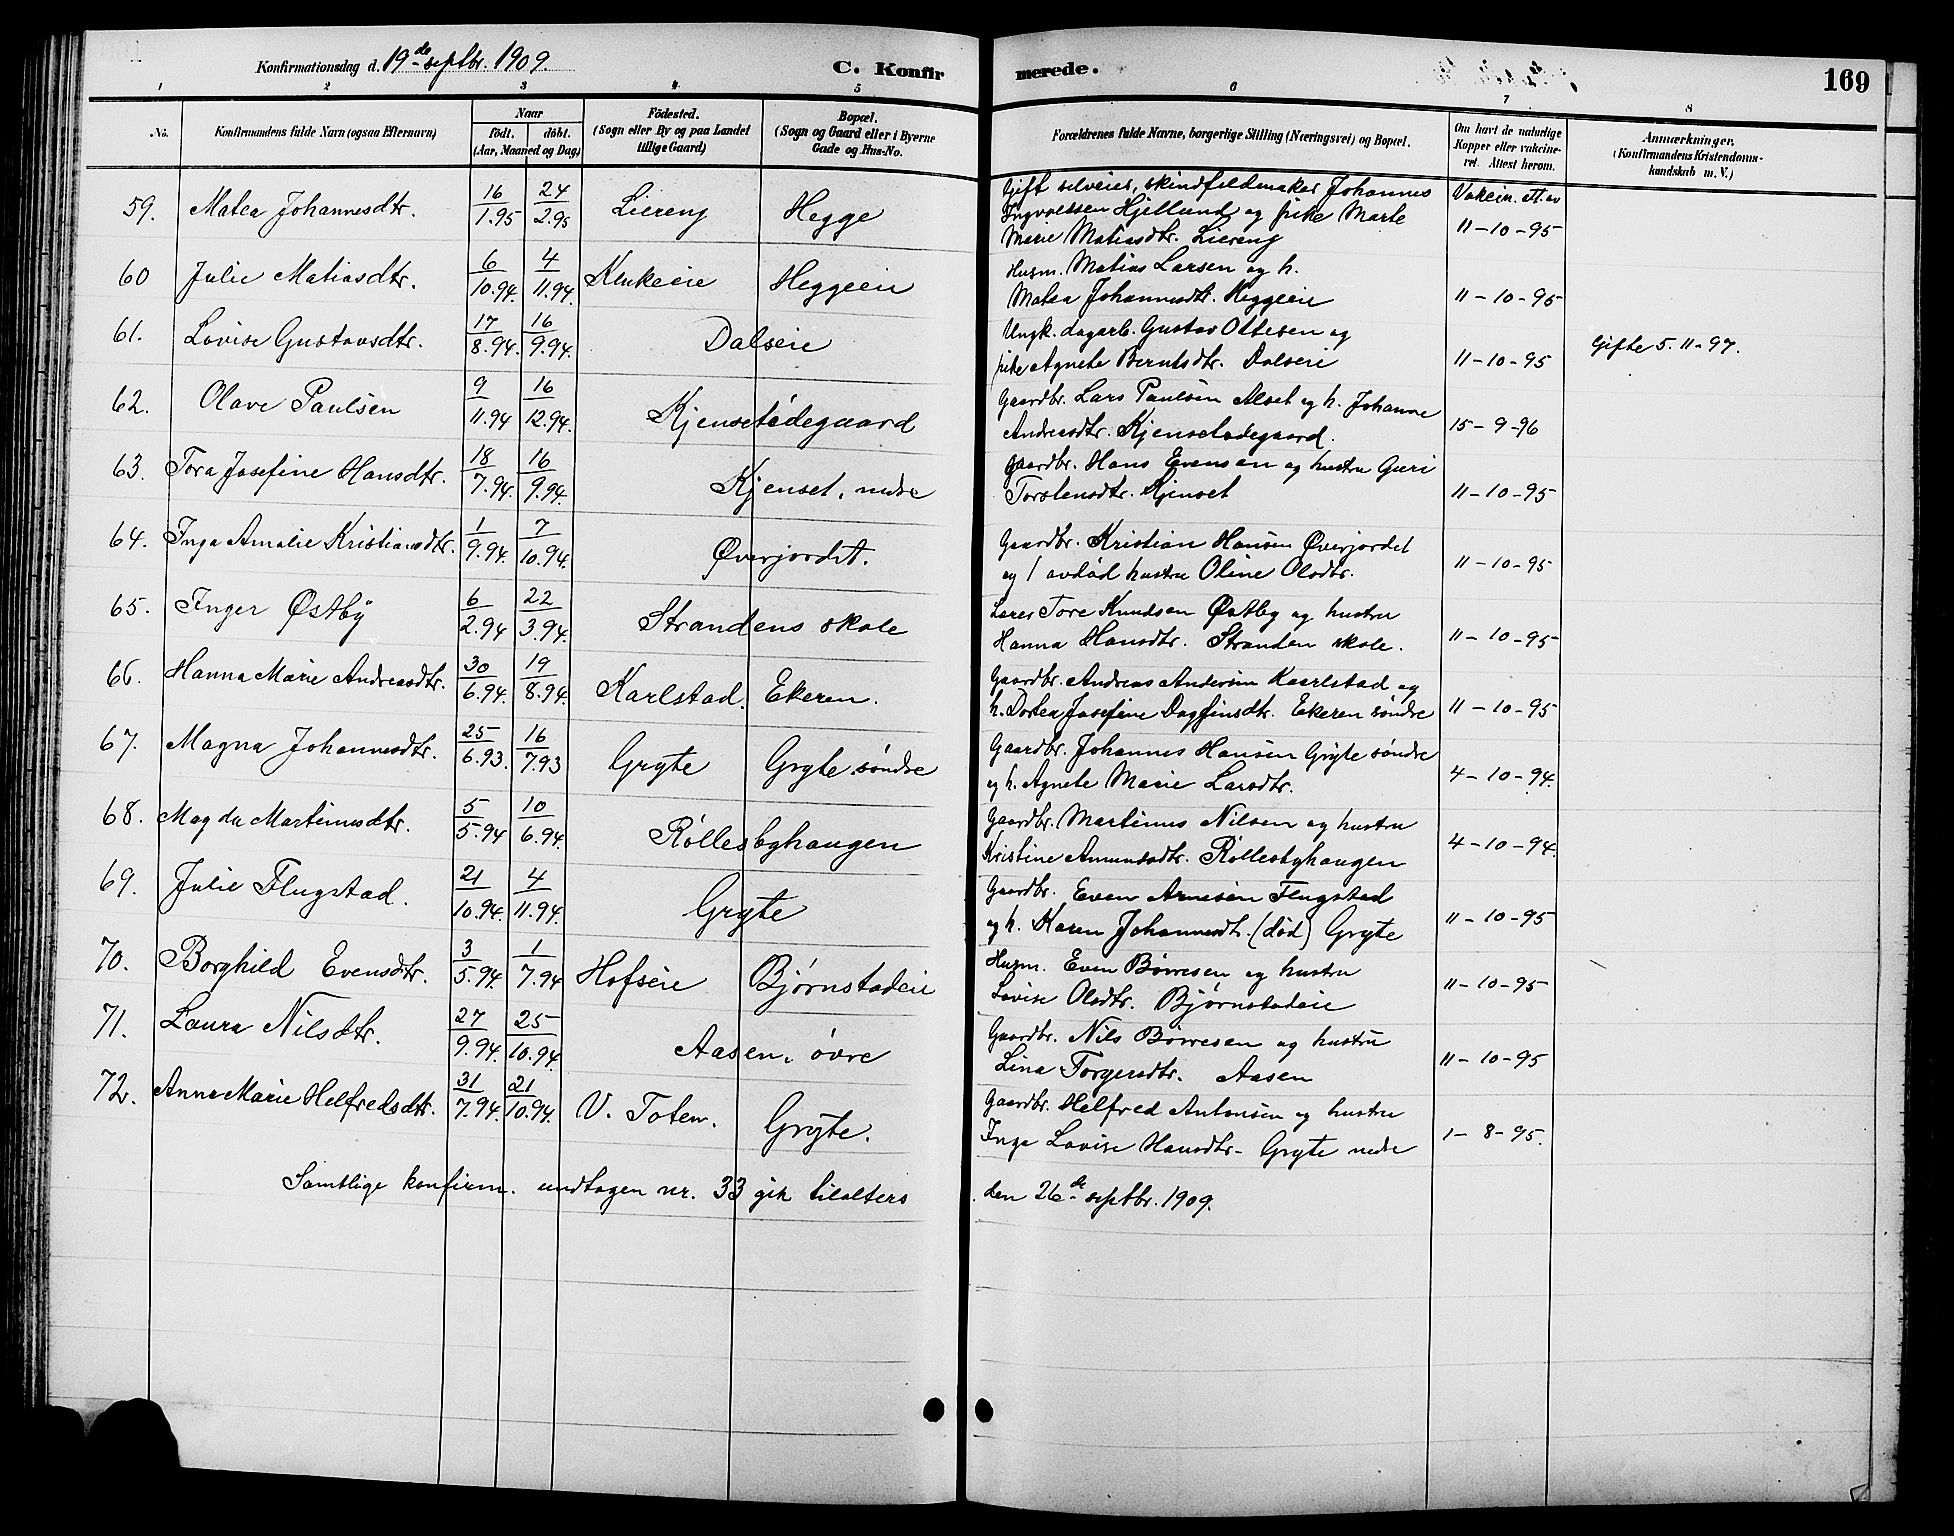 Konfirmationsdag d. 19de septbr. 1909.
C. Konfirmerede.
169
1 2 3 4 5 6 7 8
No.
Konfirmandens fulde Navn (ogsaa Efternavn)
Naar
födt. döbt.
(Aar, Maaned og Dag)
Födested.
(Sogn eller By og paa Landet
tillige Gaard)
Bopæl.
(Sogn og Gaard eller i Byerne
Gade og Hus-No.
Forældrenes fulde Navne, borgerlige Stilling (Næringsvei) og Bopæl.
Om havt de naturlige
Kopper eller vakcine-
ret. Attest herom.
Anmærkninger.
(Konfirmandens Kristendoms-
kundskab m. V.)
59. Matea Johannesdtr. 16/1.95 24/2.95 Liereng Hegge
Gift selveier, skindfeldmaker Johannes
Ingvaldsen Hjellund og pike Marte
Marie Matiasdtr. Liereng
Vakcin. att. av
11-10-95
60 Julie Matiasdtr. 6/10.94. 4/11.94. Klukeeie Heggeeie
Husm. Matias Larsen og h.
Matea Johannesdtr. Heggeeie
11-10-95
61. Lovise Gustavsdtr. 17/8.94. 16/9.94. Dalseie
Ungk. dagarb. Gustav Ottesen og
pike Agnete Berntsdtr. Dalseie
11-10-95
Gifte 5.11-97.
62. Olave Paulsen 9/11.94 16/12.94. Kjensetødegaard
Gaardbr. Lars Paulsen Alset og h. Johanne
Andreasdtr. Kjensetødegaard.
15-9-96
63. Tora Josefine Hansdtr. 18/7.94. 16/9.94. Kjenset, nedre
Gaardbr. Hans Evensen og hustru Guri
Torstensdtr. Kjenset
11-10-95
64. Inga Amalie Kristiansdtr. 1/9.94. 7/10.94. Øverjordet.
Gaardbr. Kristian Hansen Øverjordet
og 1 avdød hustru Oline Olsdtr.
11-10-95
65. Inger Østby 6/2.94 22/3.94. Strandens skole
Lærer Tore Knudsen Østby og hustru
Hanna Hansdtr. Stranden skole.
11-10-95
66. Hanna Marie Andreasdtr. 30/6.94. 19/8.94. Karlstad. Ekeren.
Gaardbr. Andreas Andersen Kaarlstad og
h. Dortea Josefine Dagfinsdtr. Ekeren søndre
11-10-95
67. Magna Johannesdtr. 25/6.93. 16/7.93 Gryte Gryte søndre
Gaardbr. Johannes Hansen Gryte søndre
og h. Agnete Marie Larsdtr.
4-10-94.
68. Magda Martinusdtr. 5/5.94 10/6.94. Røllesbyhaugen
Gaardbr. Martinus Nilsen og hustru
Kristine Amundsdtr. Røllesbyhaugen
4-10-94.
69. Julie Flugstad. 21/10.94. 4/11.94. Gryte
Gaardbr. Even Arnesen Flugstad
og h. Karen Johannesdtr. (død) Gryte
11-10-95
70. Borghild Evensdtr. 3/5.94. 1/7.94 Hofseie Bjørnstadeie
Husm. Even Børresen og hustru
Lovise Olsdtr. Bjørnstadeie
11-10-95
71. Laura Nilsdtr. 27/9.94. 25/10.94. Aasen, øvre
Gaardbr. Nils Børresen og hustru
Lina Torgersdtr. Aasen
11-10-95
72. Anna Marie Helfredsdtr. 31/7.94. 21/10.94. V. Toten. Gryte.
Gaardbr. Helfred Antonsen og hustru
Inga Lovise Hansdtr- Gryte nedre
1-8-95.
Samtlige konfirm. undtagen nr. 33 gik tilalters den 26de septbr. 1909.